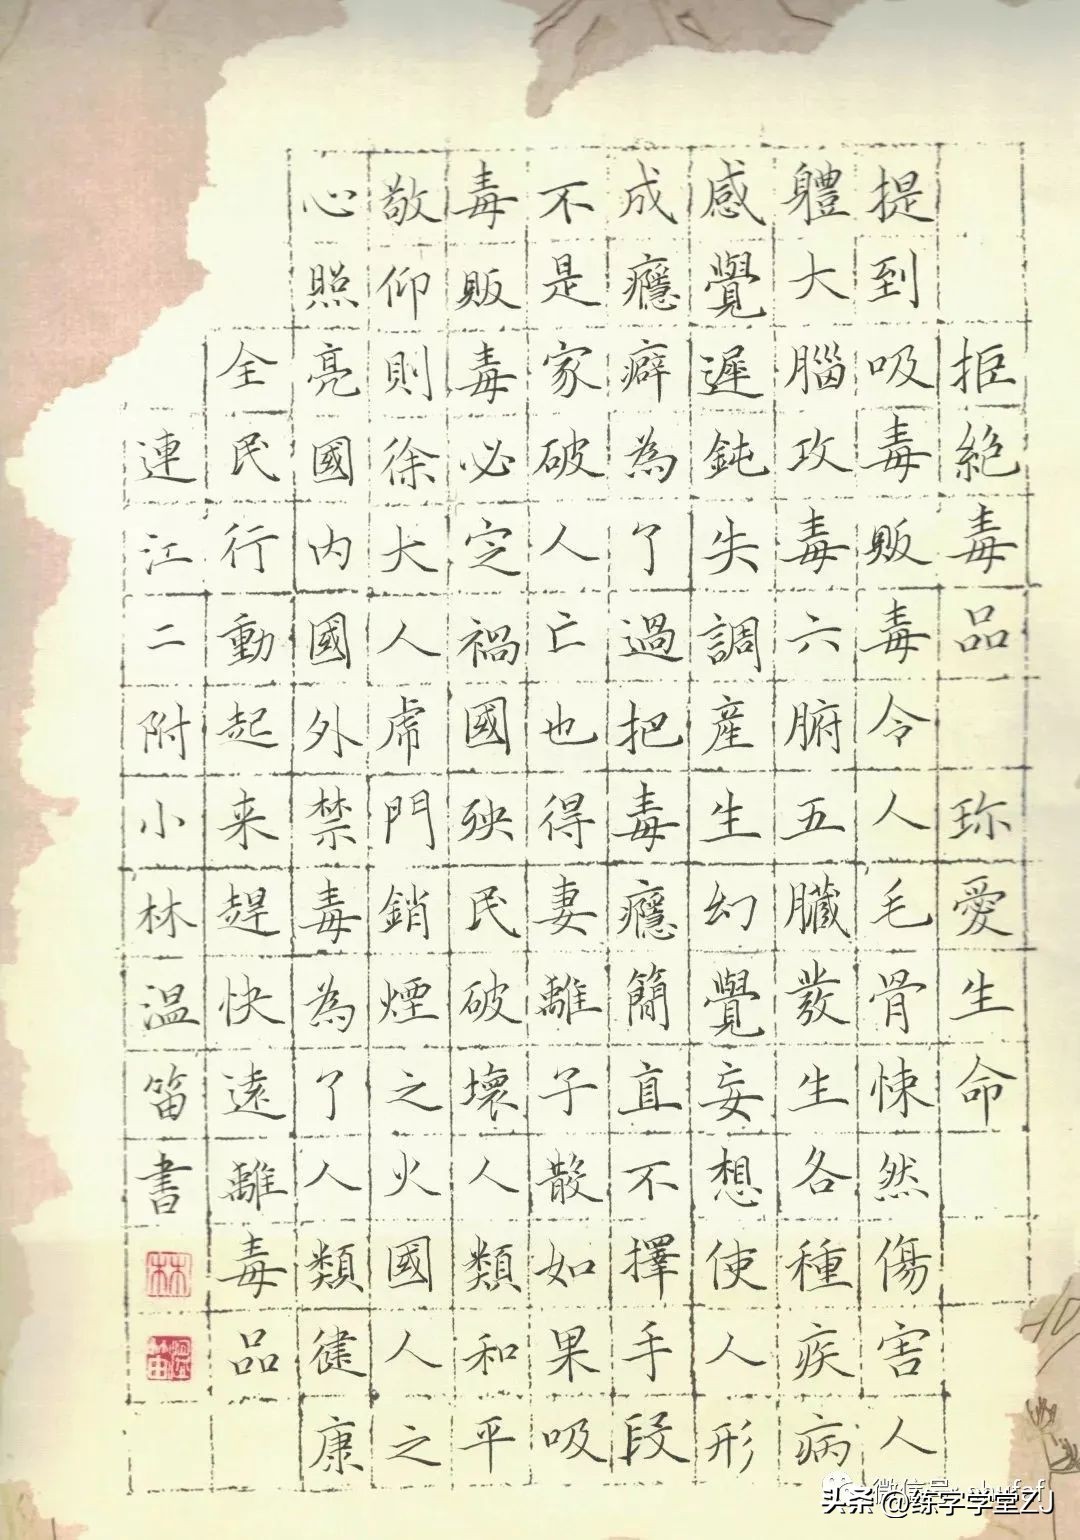 拒絕毒品 珍愛生命
提到吸毒販毒令人毛骨悚然傷害人
體大腦攻毒六腑五臟發生各種疾病
感覺遲鈍失調産生幻覺妄想使人形
成癮癖為了過把毒癮簡直不擇手段
不是家破人亡也得妻離子散如果吸
毒販毒必定禍國殃民破壞人類和平
敬仰則徐大人虎門銷煙之火國人之
心照亮國内國外禁毒為了人類健康
全民行動起来趕快遠離毒品
連江二附小林温笛書
林
温笛
微信号
头条 @练字学堂ZJ